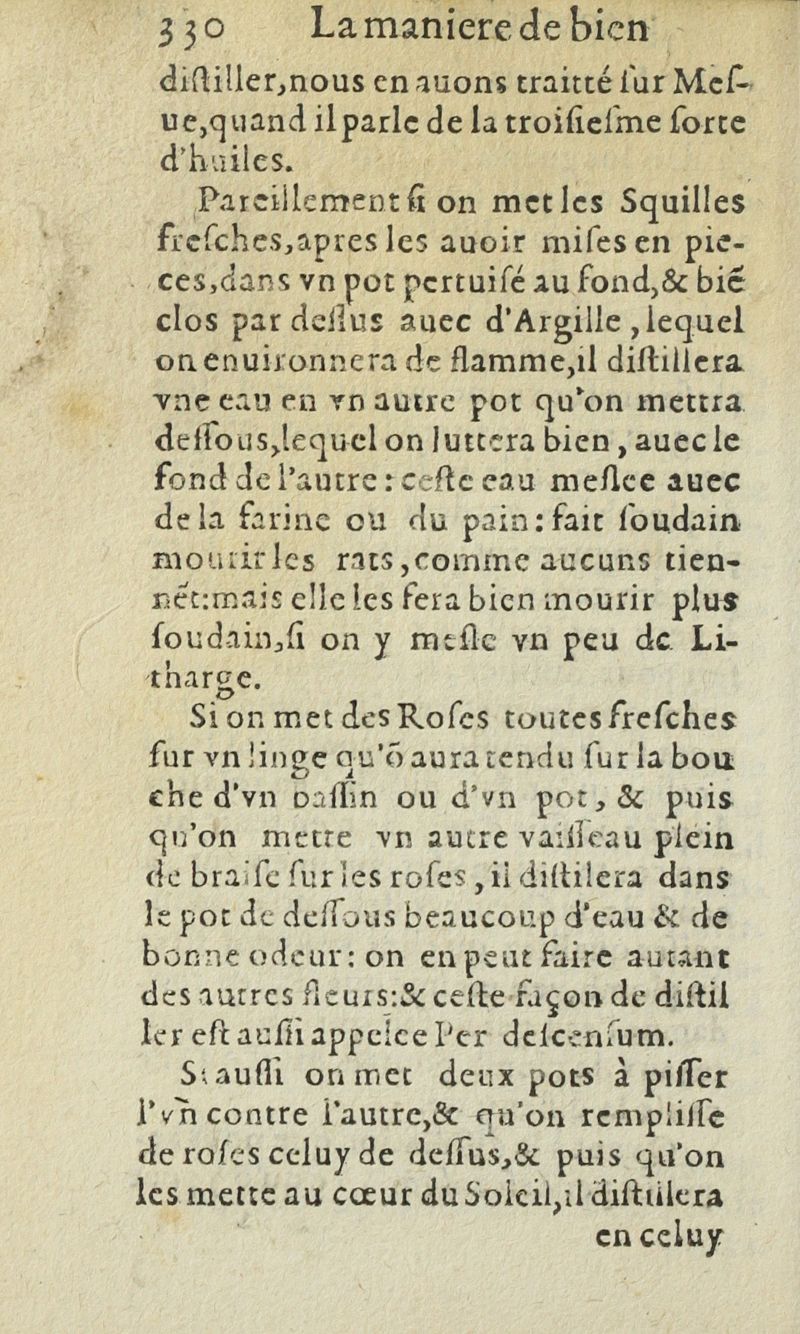 330 La maniere de bien
diſtiller, nous en auons traitté ſur Meſ-
ue, quand il parle de la troiſieſme ſorte
d'huiles.
Pareillement ſi on met les Squilles
freſches, apres les auoir miſes en pie-
ces, dans vn pot pertuiſé au fond, & biē
clos par deſſus auec d'Argille, lequel
on enuironnera de flamme, il diſtillera
vne eau en vn autre pot qu'on mettra
deſſous, lequel on luttera bien, auec le
fond de l'autre: ceſte eau meſlee auec
de la farine ou du pain: fait ſoudain
mourir les rats, comme aucuns tien-
nēt: mais elle les fera bien mourir plus
ſoudain, ſi on y meſle vn peu de Li-
tharge.
Si on met des Roſes toutes freſches
ſur vn linge qu'ō aura tendu ſur la bou
che d'vn baſſin ou d'vn pot, & puis
qu'on mette vn autre vaiſſeau plein
de braiſe ſur les roſes, il diſtilera dans
le pot de deſſous beaucoup d'eau & de
bonne odeur: on en peut faire autant
des autres fleurs: & ceſte façon de diſtil
ler eſt auſſi appelee Per deſcenſum.
Si auſſi on met deux pots à piſſer
l'vn contre l'autre, & qu'on rempliſſe
de roſes celuy de deſſus, & puis qu'on
les mette au cœur du Soleil, il diſtillera
en celuy